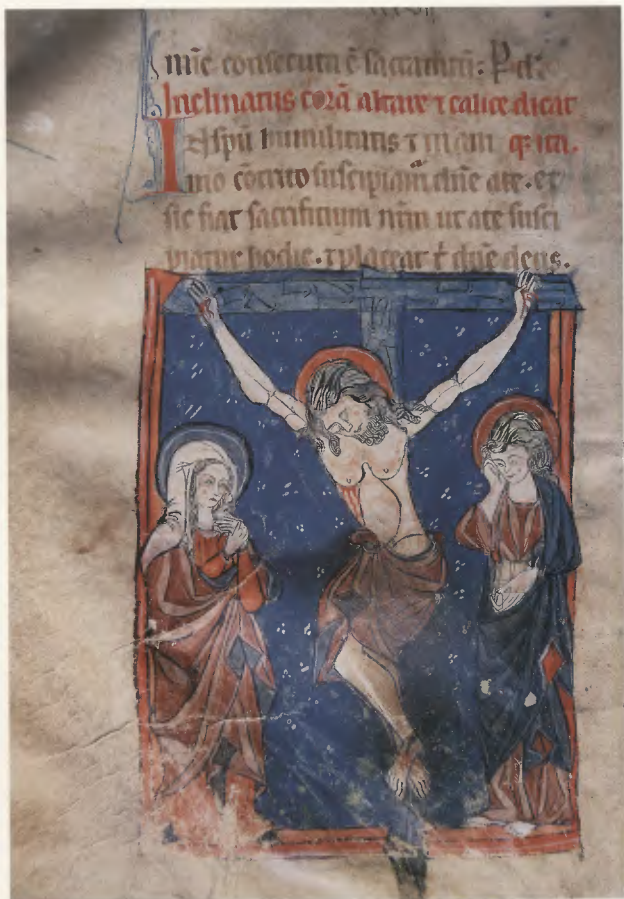 mūc consecuta ē sacramētū: P dn̄
Inclinatus corā altare ⁊ calice dicat
In spū humilitatis ⁊ in anī q̄ iti.
mo cōtrito suscipiam᷒ dn̄e a te. et
sic fiat sacrificium nr̄m ut a te susci
piatur hodie. ⁊ placeat t̄ dn̄e deus.